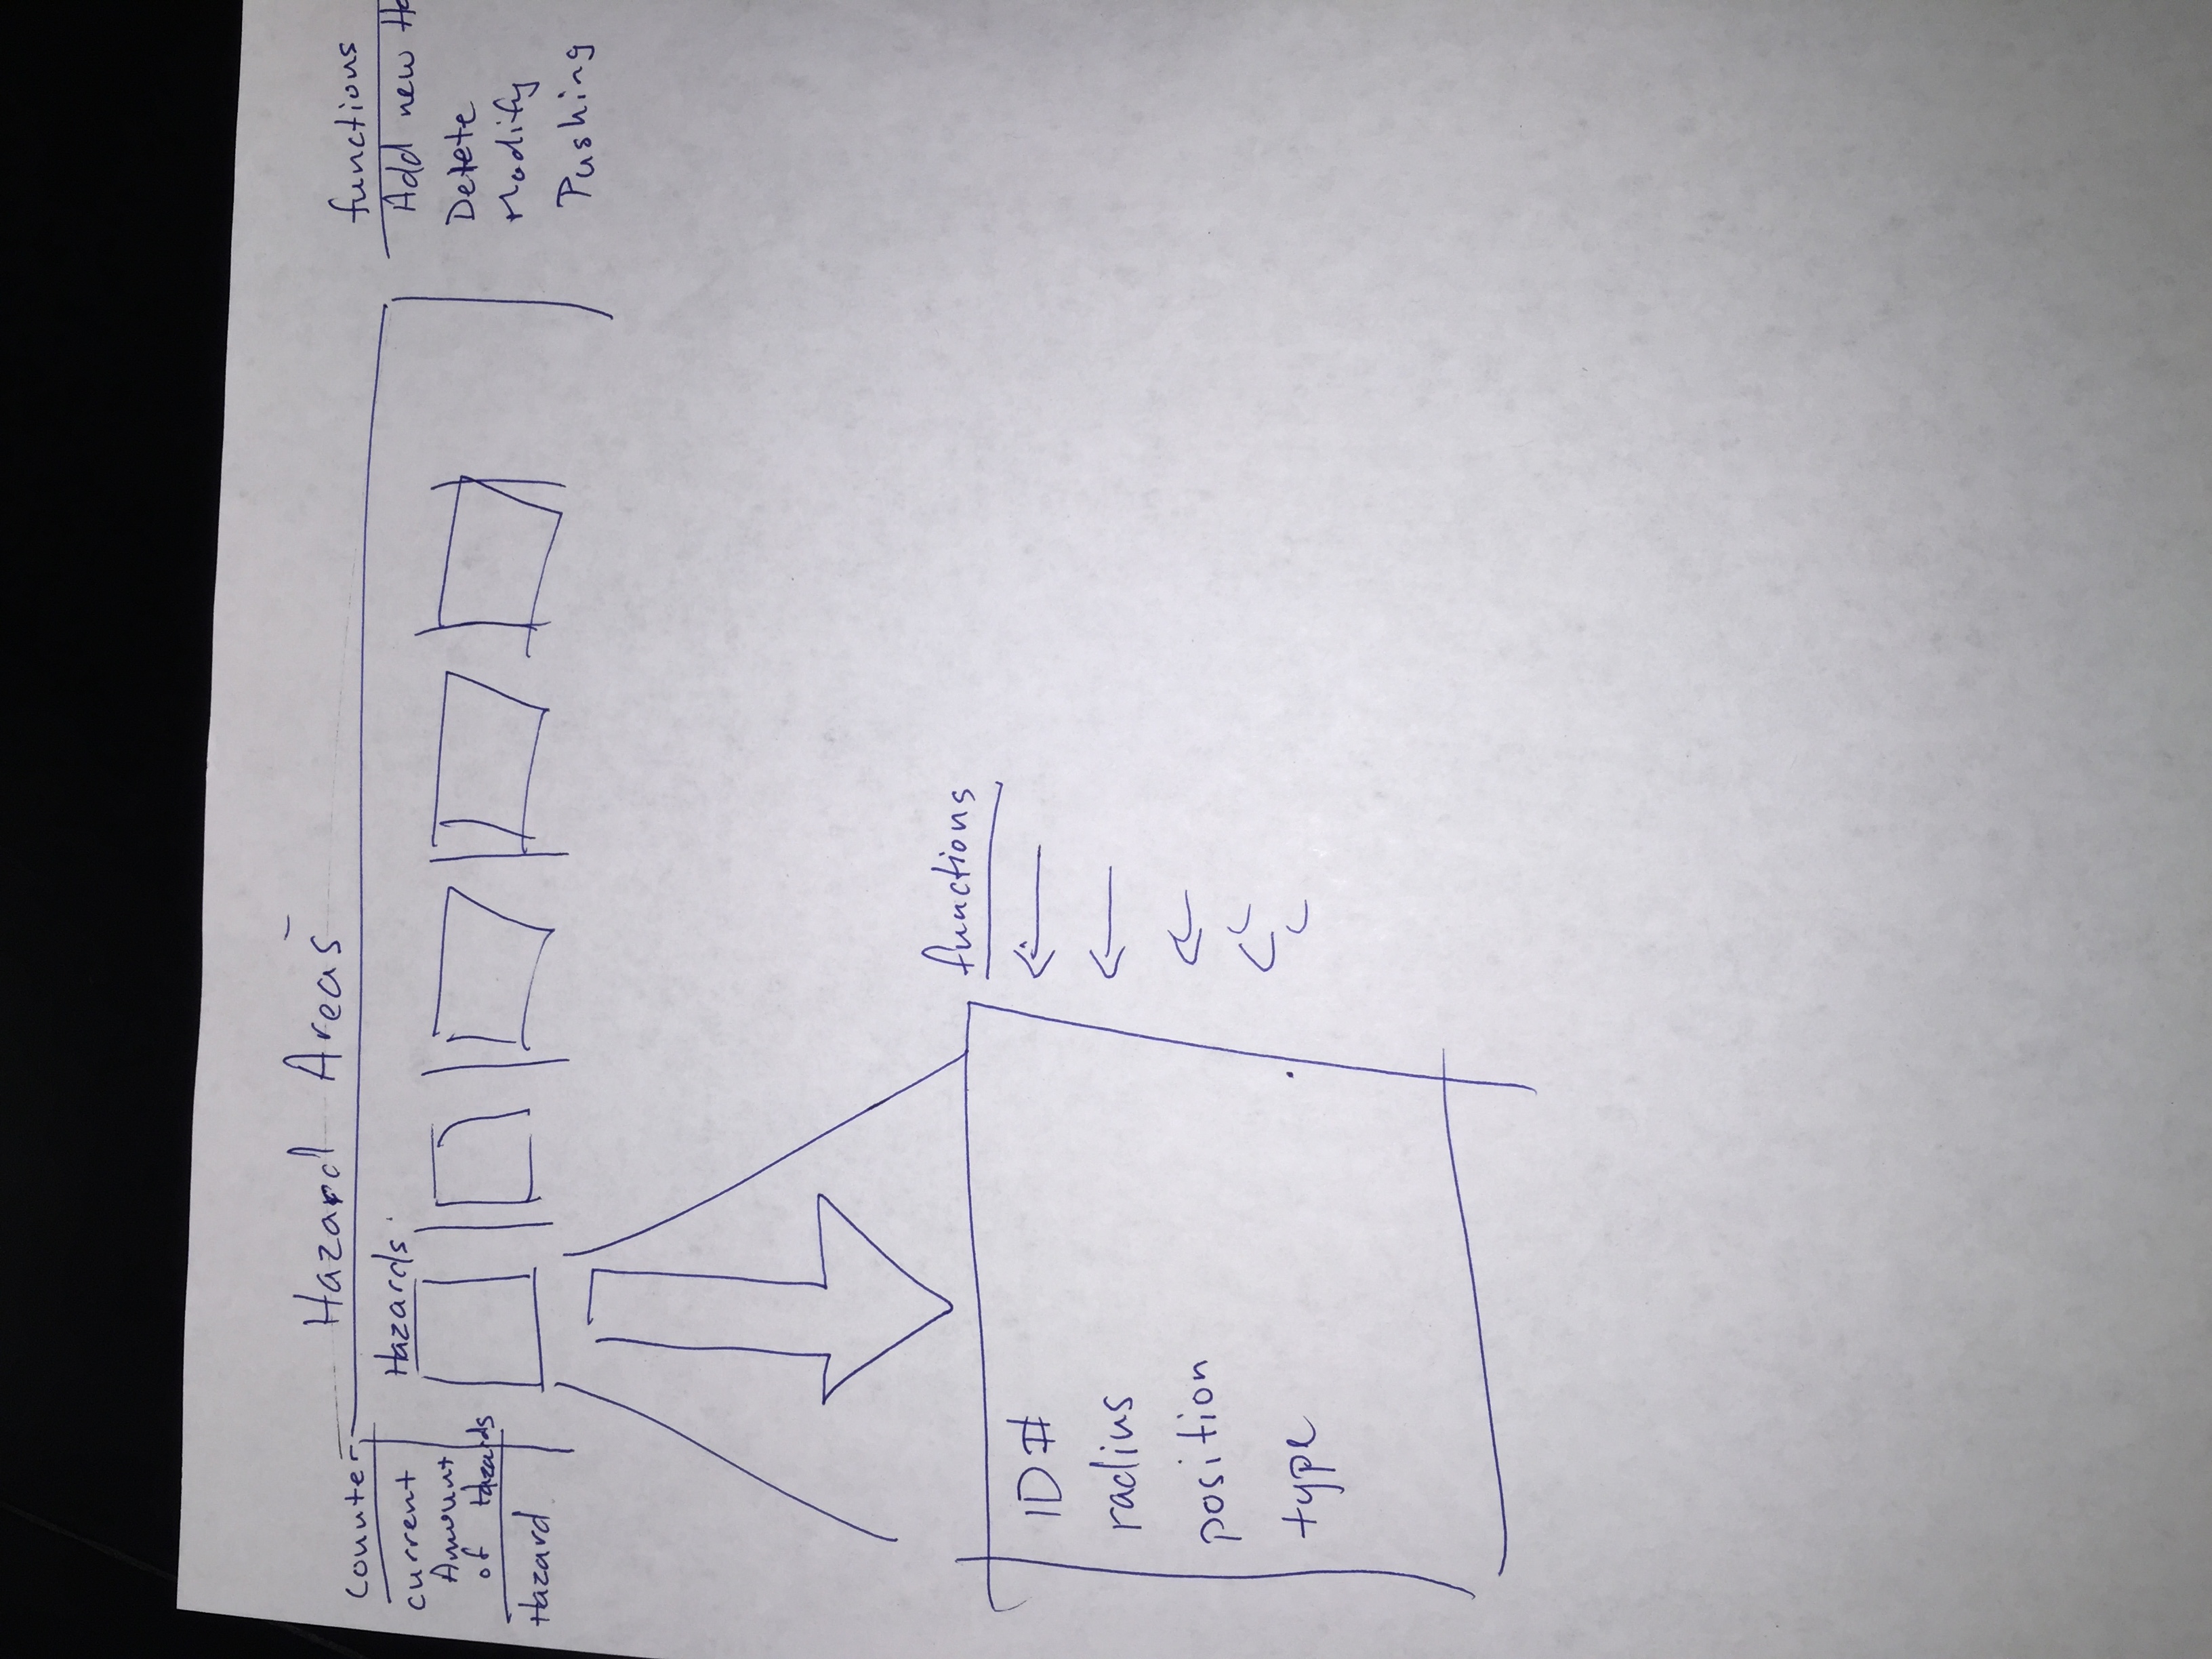 Hazard Areas
Counter
current
Amount
of Hazards
Hazard
Hazards
functions
Add new
Delete
Modify
Pushing
functions
ID #
radius
position
type